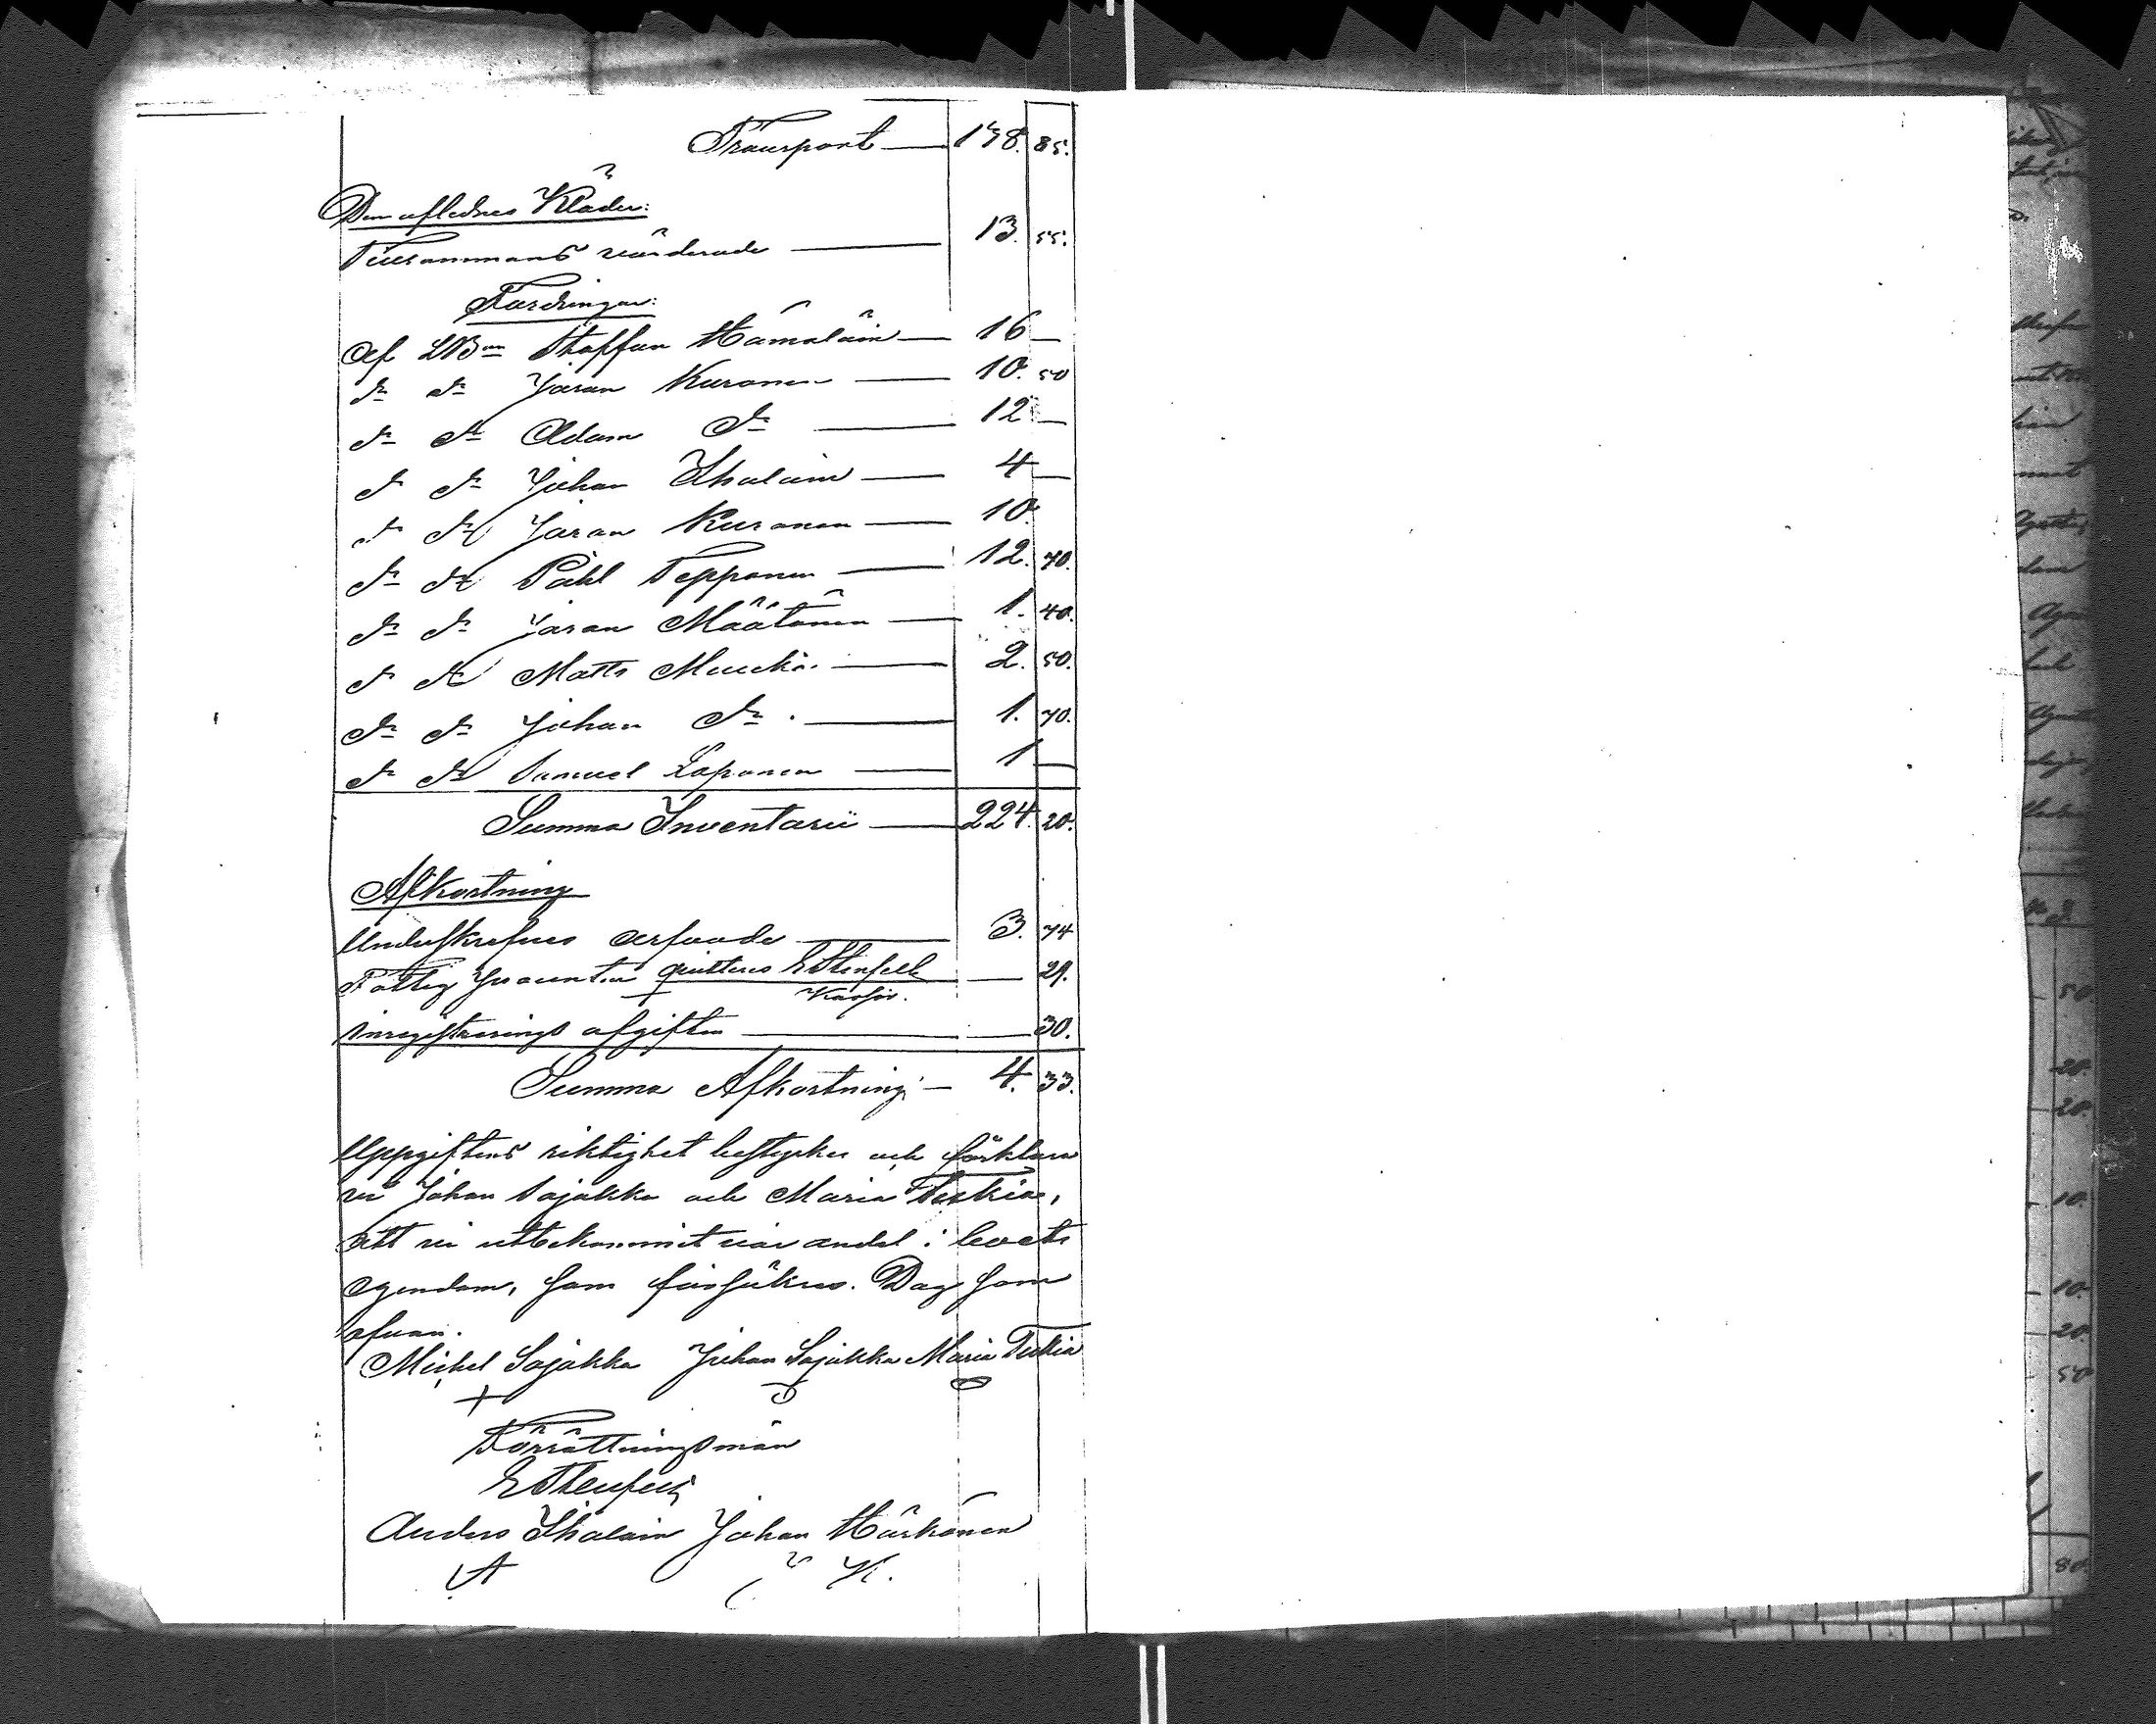 Transport — 138. 85.
Den aflednes Kläder:
Tillsammans värderade — 13. 55.
Fordringar:
Af LBn Staffan Hämäläin — 16 —
dn dn Jöran Kuronen — 10. 50
dn dn Adam dn — 12 —
dn dn Johan Ihalain — 4 —
dn dn Jöran Kuronen — 10.
dn dn Påhl Tepponen — 12. 70.
dn dn Jöran Määtänen — 1. 40.
dn dn Matts Muuckö. — 2. 50.
dn dn Johan dn. — 1. 70.
dn dn Samuel Loponen — 1 —
Summa Inventarii — 224. 20.
Afkortning
Undeskrefnes arfvode — 3. 74
Fattig procenten quitteras E Stenfelt — 29.
Kassör.
Inregistrerings afgiften — 30.
Summa Afkortning — 4. 33.
Uppgiftens riktighet bestyrkes och förklara
vi Johan Sajukka och Maria Teskia,
att vi utbekommit vår andel i boets
egendom, som försäkras. Dag som
ofvan.
Michel Sajukka Johan Sajukka Maria Teskia
Förrättningsmän
E Stenfelt
Anders Ihalain Johan Härkönen
A K.